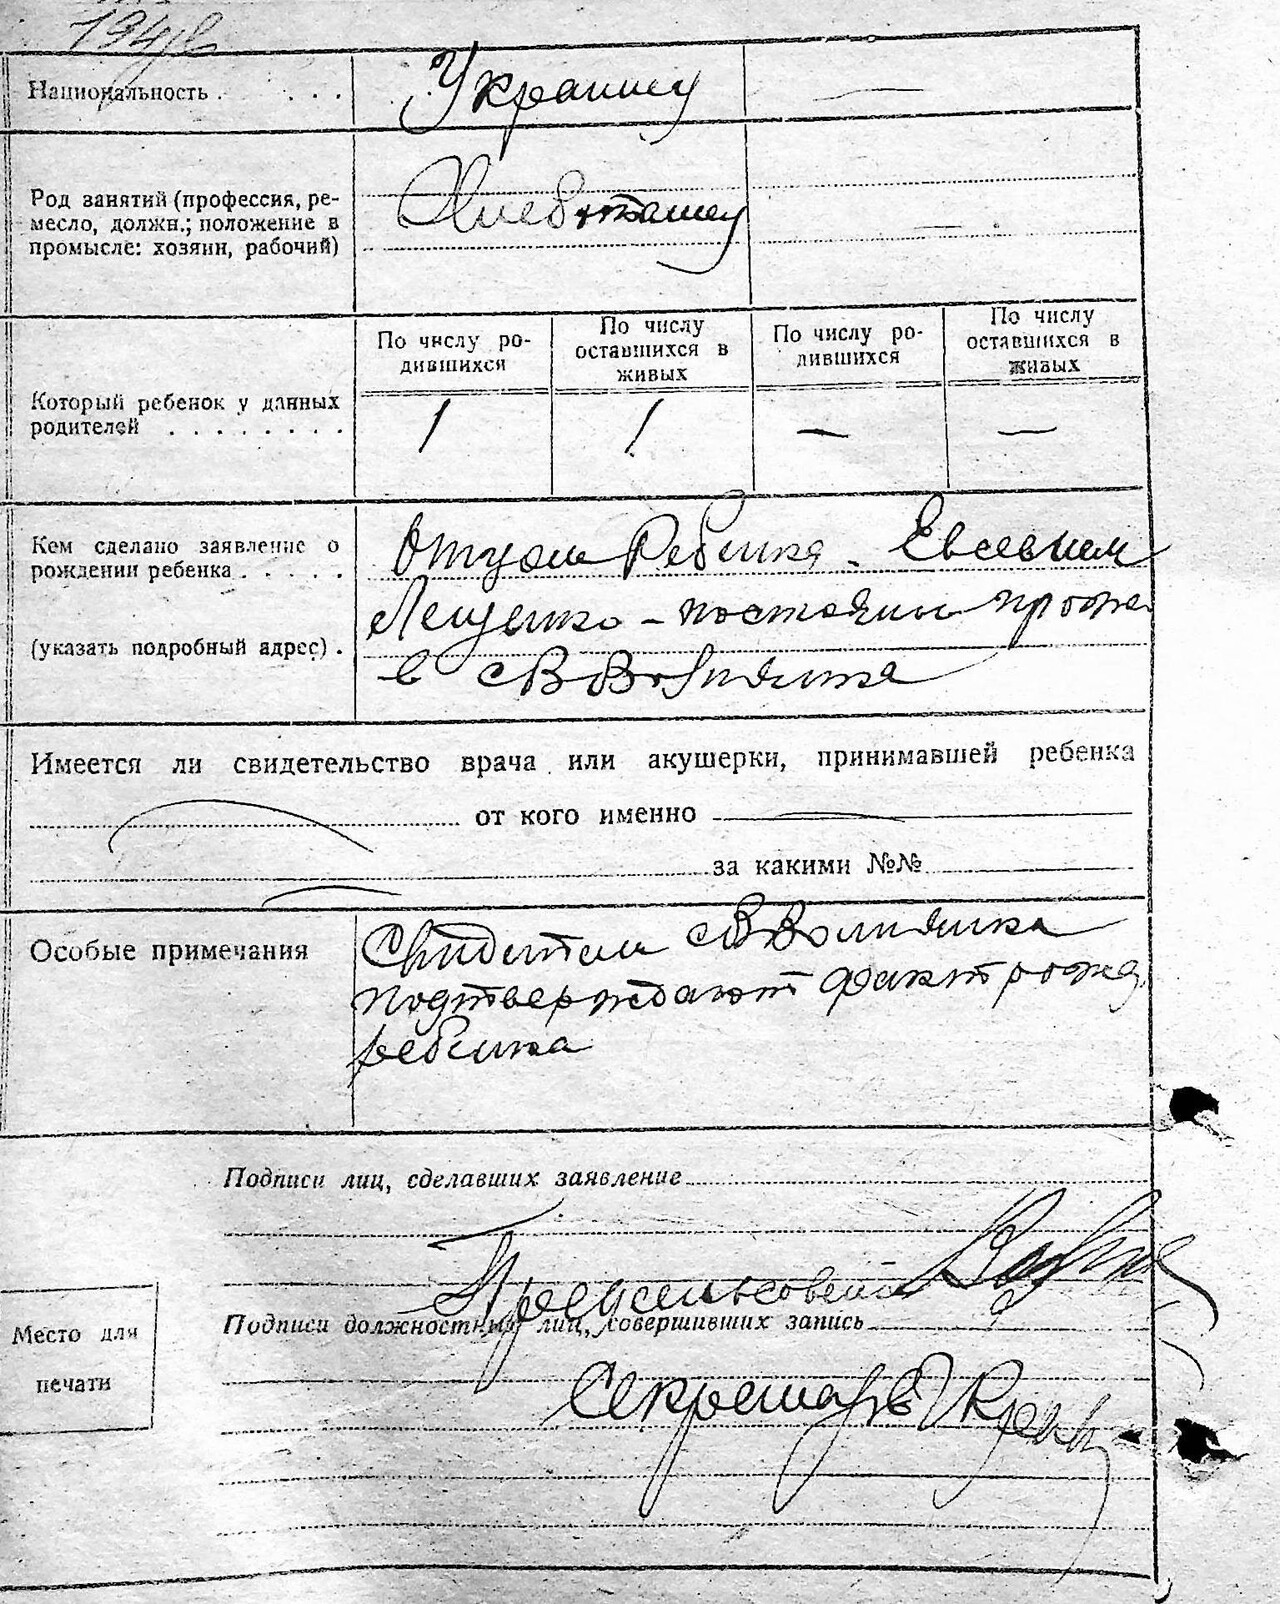 Национальность . . . . Украинец
Род занятий (профессия, ре-
месло, должн.; положение в
промысле: хозяин, рабочий)
Хлебопашец
По числу ро-
дившихся
По числу
оставшихся в
живых
По числу ро-
дившихся
По числу
оставшихся в
живых
Который ребенок у данных
родителей . . . . . . . . 1 1 — —
Кем сделано заявление о
рождении ребенка . . . . .
(указать подробный адрес) .
Отцом Ребенка - Евсевием
Лещенко - постоянно прожи
в с
Имеется ли свидетельство врача или акушерки, принимавшей ребенка
от кого именно
за какими №№
Особые примечания
Свидетели
подтверждают факт рожд.
ребенка
Подписи лиц, сделавших заявление
Предсельсовета
Подписи должностных лиц, совершивших запись
Секретарь
Место для
печати